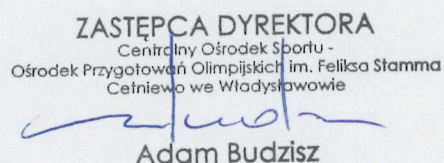 ZASTĘPCA DYREKTORA
Centralny Ośrodek Sportu -
Ośrodek Przygotowań Olimpijskich im. Feliksa Stamma
Cetniewo we Władysławowie
Adam Budzisz